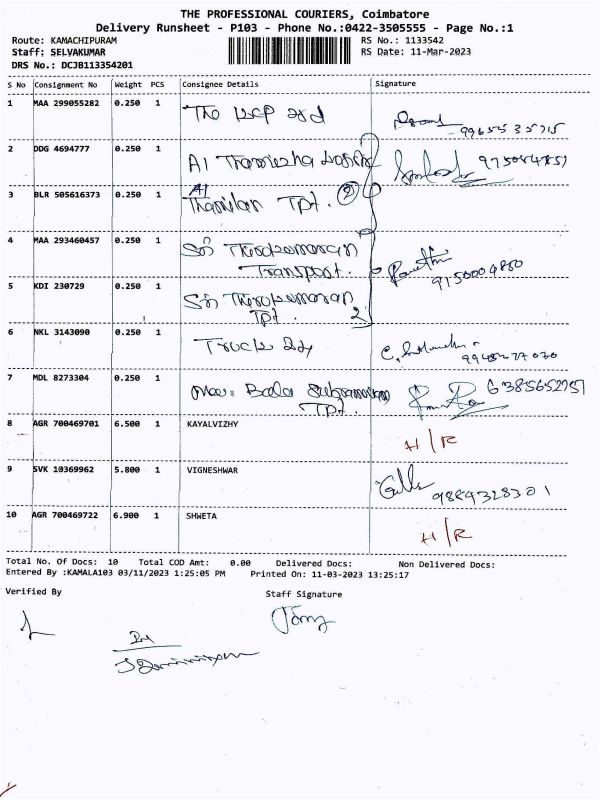 THE PROFESSIONAL COURIERS, Coimbatore
Delivery Runsheet - P103 - Phone No.:0422-3505555 - Page No.:1
Route: KAMACHIPURAM RS No.: 1133542
Staff: SELVAKUMAR RS Date: 11-Mar-2023
DRS No.: DCJB113354201
S No Consignment No Weight PCS Consignee Details Signature
1 MAA 299055282 0.250 1 The
2 DDG 4694777 0.250 1 A1
3 BLR 505616373 0.250 1 A1 Thamilan Tpt. 2
4 MAA 293460457 0.250 1 Sri Thirukumaran
Transport.
9150004850
5 KDI 230729 0.250 1 Sri Thirukumaran
Tpt. 2
6 NKL 3143090 0.250 1 Truck
7 MDL 8273304 0.250 1 Bala
Tpt.
8 AGR 700469701 6.500 1 KAYALVIZHY H/R
9 SVK 10369962 5.800 1 VIGNESHWAR
9884328301
10 AGR 700469722 6.900 1 SHWETA
H/R
Total No. Of Docs: 10 Total COD Amt: 0.00 Delivered Docs: Non Delivered Docs:
Entered By :KAMALA103 03/11/2023 1:25:05 PM Printed On: 11-03-2023 13:25:17
Verified By Staff Signature